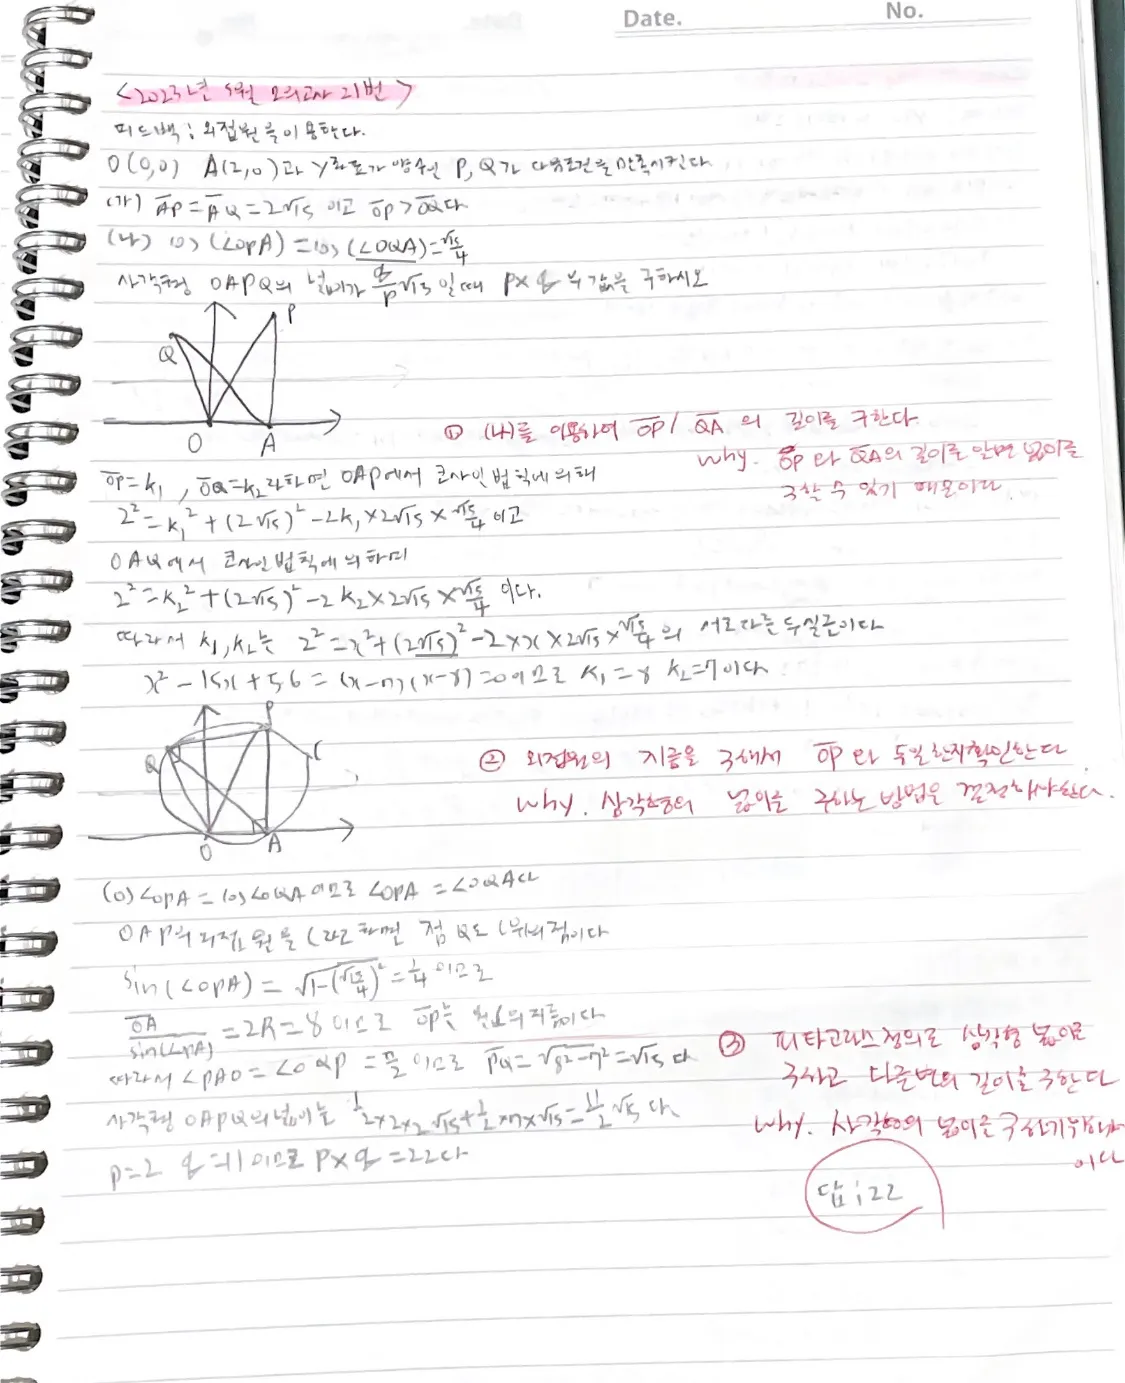 Date.
No.
<2023년 5월 모의고사 21번>
피드백 ; 외접원을 이용한다.
O(0,0) A(2,0)과 y좌표가 양수인 P, Q가 다음조건을 만족시킨다
(가) AP=AQ=2√15 이고 OP>OQ다
(나) cos(∠OPA)=cos(∠OQA)=√15/4
사각형 OAPQ의 넓이가 q/p√15 일때 p×q 의 값을 구하시오
Q
P
O
A
① (나)를 이용하여 OP/ QA 의 길이를 구한다
why. OP 와 QA의 길이를 알면 넓이를
구할 수 있기 때문이다.
OP=k₁, OQ=k₂라하면 OAP에서 코사인법칙에의해
2²=k₁²+(2√15)²-2k₁×2√15×√15/4 이고
OAQ에서 코사인법칙에 의하며
2²=k₂²+(2√15)²-2k₂×2√15×√15/4 이다.
따라서 k₁,k₂는 2²=x²+(2√15)²-2×x×2√15×√15/4의 서로다른 두실근이다
x²-15x+56=(x-7)(x-8)=0이므로 k₁=8 k₂=7이다
P
Q
C
O
A
② 외접원의 지름을 구해서 OP 와 동일한지확인한다
why. 삼각형의 넓이를 구하는 방법을 결정해야한다.
cos∠OPA=cos∠OQA이므로 ∠OPA=∠OQA다
OAP의 외접원을 C라고 하면 점 Q도 C위의 점이다
sin(∠OPA)=√1-(√15/4)²=1/4 이므로
OA/sin(∠OPA)=2R=8 이므로 OP는 원C의 지름이다
따라서 ∠PAO=∠OQP=π/2 이므로 PQ=√8²-7²=√15 다
③ 피타고라스정의로 삼각형 넓이를
구하고 다른변의 길이를 구한다
사각형 OAPQ의 넓이는 1/2×2×2√15+1/2×7×√15=11/2√15 다.
why. 사각형의 넓이를 구하기위해
이다
p=2 q=11이므로 p×q=22다
답 ; 22